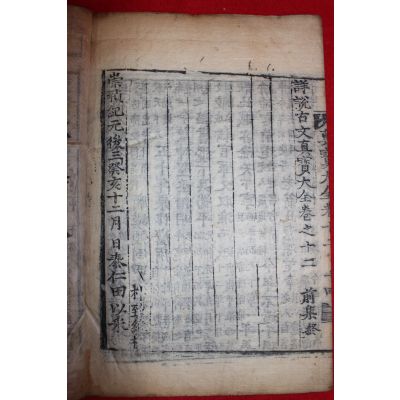 詳說古文真寶大全卷之十二 前集終
崇禎紀元後三癸亥十二月 日泰仁田以采
朴